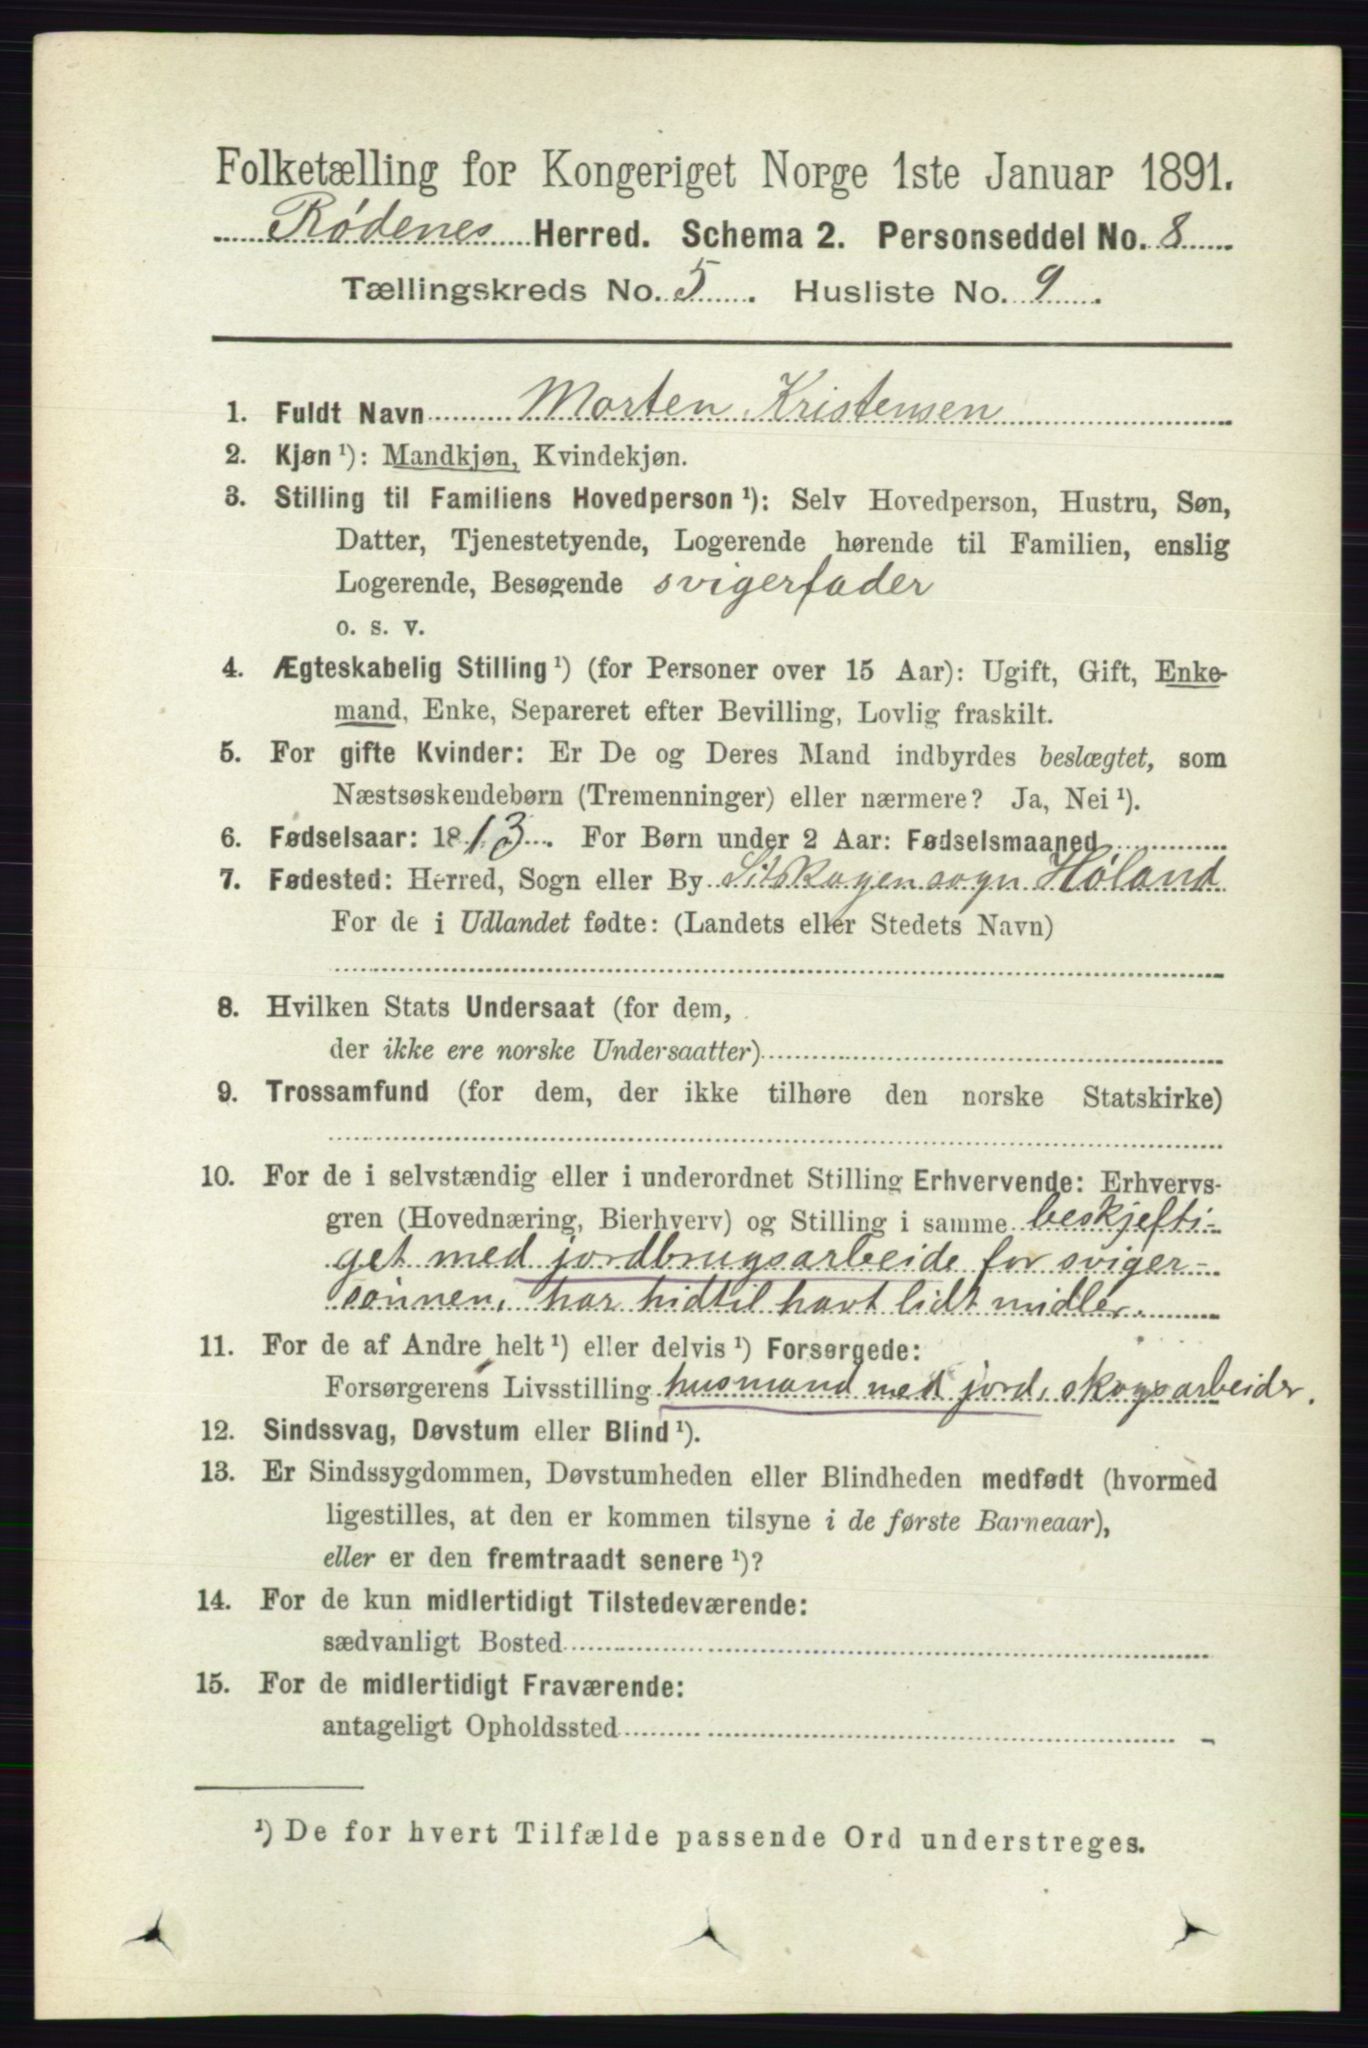 Folketælling for Kongeriget Norge 1ste Januar 1891.
Rødenes Herred. Schema 2. Personseddel No. 8
Tællingskreds No. 5. Husliste No. 9.
1. Fuldt Navn Morten Kristensen
2. Kjøn ¹): Mandkjøn, Kvindekjøn.
3. Stilling til Familiens Hovedperson ¹): Selv Hovedperson, Hustru, Søn,
Datter, Tjenestetyende, Logerende hørende til Familien, enslig
Logerende, Besøgende svigerfader
o. s. v.
4. Ægteskabelig Stilling ¹) (for Personer over 15 Aar): Ugift, Gift, Enke-
mand, Enke, Separeret efter Bevilling, Lovlig fraskilt.
5. For gifte Kvinder: Er De og Deres Mand indbyrdes beslægtet, som
Næstsøskendebørn (Tremenninger) eller nærmere? Ja, Nei ¹).
6. Fødselsaar: 1813. For Børn under 2 Aar: Fødselsmaaned
7. Fødested: Herred, Sogn eller By Sitskogen sogn Høland
For de i Udlandet fødte: (Landets eller Stedets Navn)
8. Hvilken Stats Undersaat (for dem,
der ikke ere norske Undersaatter)
9. Trossamfund (for dem, der ikke tilhøre den norske Statskirke)
10. For de i selvstændig eller i underordnet Stilling Erhvervende: Erhvervs-
gren (Hovednæring, Bierhverv) og Stilling i samme beskjefti-
get med jordbrugsarbeide for sviger-
sønnen, har hidtil havt lidt midler.
11. For de af Andre helt ¹) eller delvis ¹) Forsørgede:
Forsørgerens Livsstilling husmand med jord, skogsarbeider.
12. Sindssvag, Døvstum eller Blind ¹).
13. Er Sindssygdommen, Døvstumheden eller Blindheden medfødt (hvormed
ligestilles, at den er kommen tilsyne i de første Barneaar),
eller er den fremtraadt senere ¹)?
14. For de kun midlertidigt Tilstedeværende:
sædvanligt Bosted
15. For de midlertidigt Fraværende:
antageligt Opholdssted
¹) De for hvert Tilfælde passende Ord understreges.